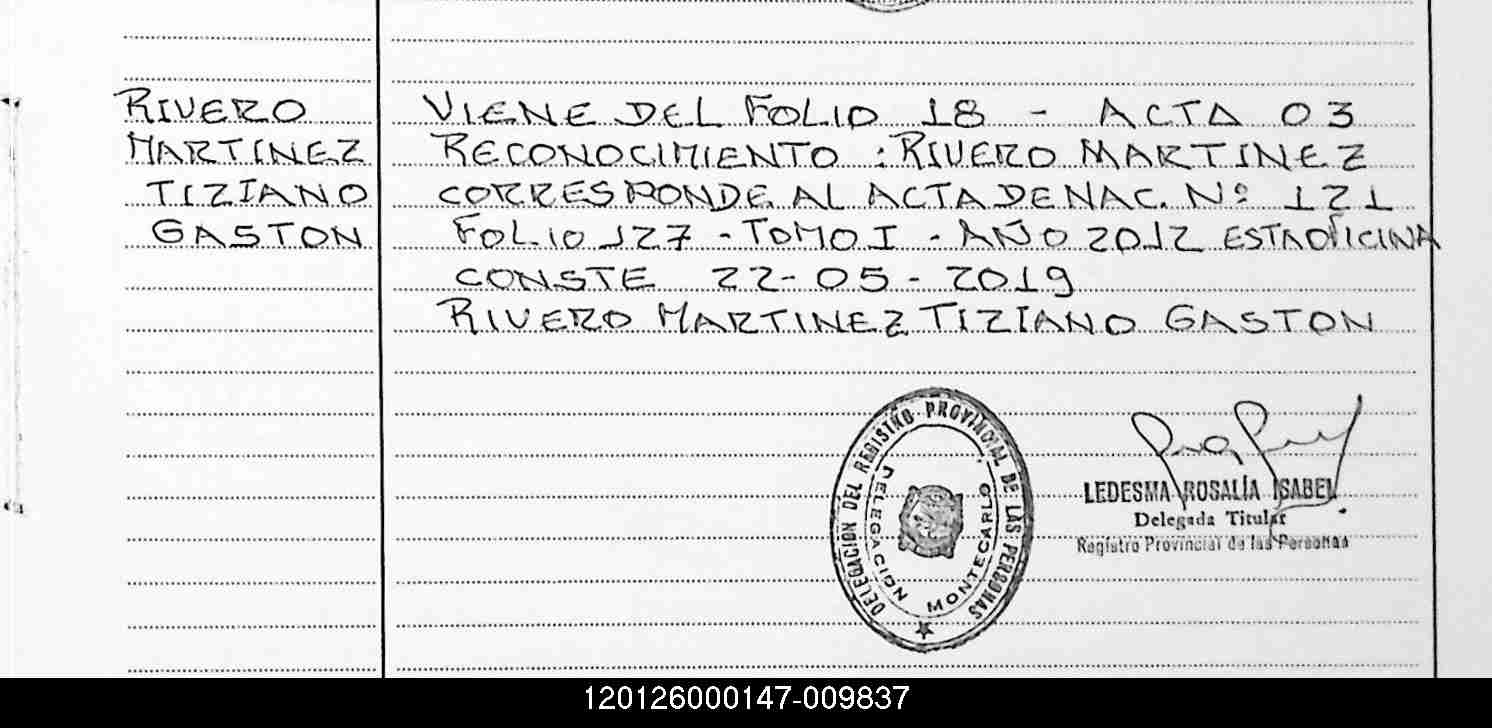 RIVERO
MARTINEZ
TIZIANO
GASTON
VIENE DEL FOLIO 18 - ACTA 03
RECONOCIMIENTO : RIVERO MARTINEZ
CORRESPONDE AL ACTA DE NAC. Nº 121
FOLIO 127 - TOMO I - AÑO 2012 ESTA OFICINA
CONSTE 22-05-2019
RIVERO MARTINEZ TIZIANO GASTON
DELEGACION DEL REGISTRO PROVINCIAL DE LAS PERSONAS
DELEGACION MONTECARLO
LEDESMA ROSALÍA ISABEL
Delegada Titular
Registro Provincial de las Personas
120126000147-009837